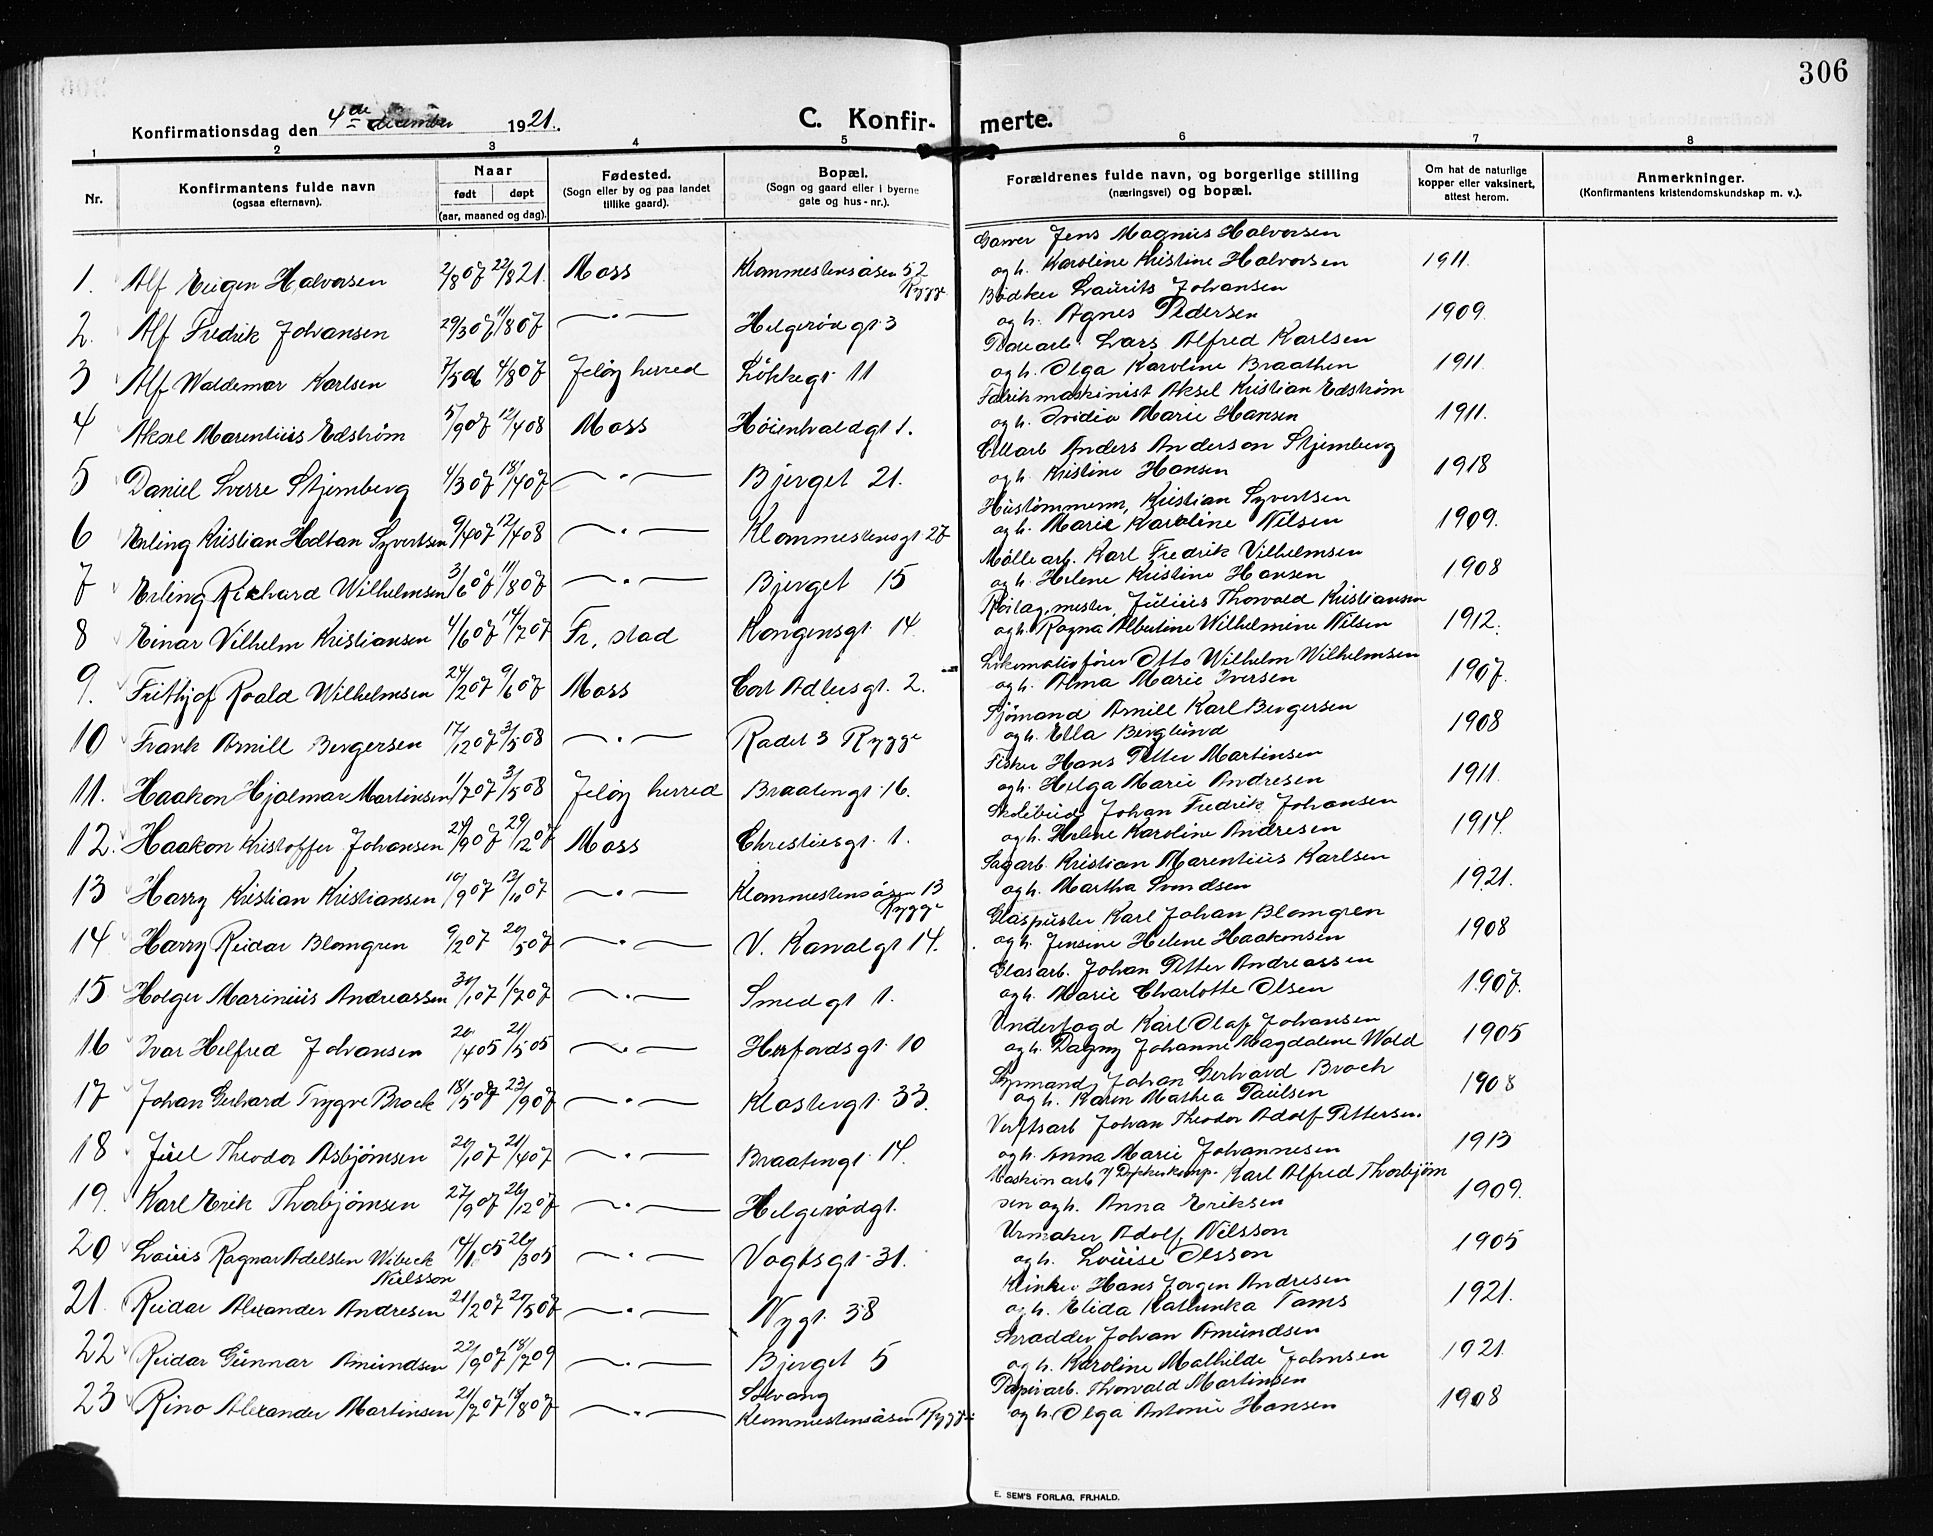 306
Konfirmationsdag den 4de december 1921.
C. Konfir-merte.
1 2 3 4 5 6 7 8
Nr.
Konfirmantens fulde navn
(ogsaa efternavn).
Naar
født døpt
(aar, maaned og dag).
Fødested.
(Sogn eller by og paa landet
tillike gaard).
Bopæl.
(Sogn og gaard eller i byerne
gate og hus-nr.).
Forældrenes fulde navn, og borgerlige stilling
(næringsvei) og bopæl.
Om hat de naturlige
kopper eller vaksinert,
attest herom.
Anmerkninger.
(Konfirmantens kristendomskundskap m. v.).
Garver Jens Magnus Halvorsen
1. Alf Eugen Halvorsen 2/8 07 22/8 21. Moss Klommestensåsen 52 Rygge og h. Karoline Kristine Halvorsen 1911.
Bødker Laurits Johansen
2. Alf Fredrik Johansen 29/3 07 11/8 07 —·— Helgerød gt. 3 og h. Agnes Pedersen 1909.
Lars Alfred Karlsen
3 Alf Waldemar Karlsen 7/5 06 4/8 07 Jeløy herred Løkkegt. 11 og h. Olga Karoline Braathen 1911.
Fabrikmaskinist Aksel Kristian Edstrøm
4 Aksel Marentius Edstrøm 5/9 07 12/4 08 Moss Høienhaldgt 1. og h. Ovidia Marie Hansen 1911.
Cellarb Anders Anderson Stjernberg
5 Daniel Sverre Stjernberg 4/3 07 18/4 07 —·— Bjerget 21. og h. Kristine Hansen 1918
Hustømmerm, Kristian Syvertsen
6 Erling Kristian Holtan Syvertsen 9/4 07 12/4 08 —·— Klommestensgt. 27 og h. Marie Karoline Nilsen 1909.
Mølle arb. Karl Fredrik Vilhelmsen
7 Erling Richard Wilhelmsen 3/6 07 11/8 07 —·— Bjerget 15 og h. Helene Kristine Hansen 1908
mester, Julius Thorvald Kristiansen
8 Einar Vilhelm Kristiansen 4/6 07 14/7 07 Fr. stad Kongensgt. 14. og h. Ragna Albertine Wilhelmine Nilsen 1912.
Lokomotivfører Otto Wilhelm Wilhelmsen
9. Frithjof Roald Wilhelmsen 24/2 07 9/6 07 Moss Cort Adlersgt. 2. og h. Alma Marie Iversen 1907.
Sjømand Arnill Karl Bergersen
10 Frank Arnill Bergersen 17/12 07 3/5 08 —·— Radet 3 Rygge og h. Ella Berglund 1908
Fisker Hans Petter Martinsen
11. Haakon Hjalmar Martinsen 1/7 07 3/5 08 Jeløy herred Braatengt. 16. og h. Helga Marie Andresen 1911.
Skolebud Johan Fredrik Johansen
12. Haakon Kristoffer Johansen 24/9 07 29/12 07 Moss Christiesgt. 1. og h. Helene Karoline Andresen 1914.
Sagarb. Kristian Marentius Karlsen
13 Harry Kristian Kristiansen 10/9 07 13/10 07 —·— Klommestensåsen 13 Rygge og h. Martha Svendsen 1921.
Glaspuster Karl Johan Blomgren
14 Harry Reidar Blomgren 9/2 07 20/5 07 —·— V. Kanalgt 14. og h. Jensine Helene Haakonsen 1908
Glasarb. Johan Petter Andreassen
15 Holger Marinius Andreassen 30/1 07 1/7 07 —·— Smedgt 1. og h. Marie Charlotte Olsen 1907.
Underfogd Karl Olaf Johansen
16 Ivar Helfred Johansen 20/4 05 21/5 05 —·— Herfordsgt. 10 og h. Dagny Johanne Magdalene Wold 1905
Johan Gerhard Broch
17 Johan Gerhard Trygve Brock 18/5 07 23/9 07 —·— Klostergt. 33. og h. Karen Mathea Paulsen 1908
Verftsarb Johan Theodor Adolf Pettersen.
18 Juel Theodor Asbjørnsen 20/1 07 21/4 07 —·— Braatengt. 14. og h. Anna Marie Johannesen 1913
Maskinarb Karl Alfred Thorbjørn
19. Karl Erik Thorbjørnsen 27/9 07 26/12 07 —·— Helgerødgt. sen og h. Anna Eriksen 1909.
Urmaker Adolf Nilsson
20 Louis Ragnar Adelsten Wibeck Nielsson 14/1 05 26/3 05 —·— Vogtsgt. 31. og h. Louise Olsson 1905
Klinker Hans Jørgen Andresen
21. Reidar Alexander Andresen 21/2 07 27/5 07 —·— Nygt. 38 og h. Elida Kathinka Tams 1921.
Skrædder Johan Amundsen
22 Reidar Gunnar Amundsen 22/9 07 18/7 09 —·— Bjerget 5 og h. Karoline Mathilde Johnsen 1921
Papirarb. Thorvald Martinsen
23 Rino Alexander Martinsen 21/7 07 18/8 07 —·— Solvang Klommestensåsen Rygge og h. Olga Antonie Hansen 1908
E. SEM'S FORLAG, FR.HALD.